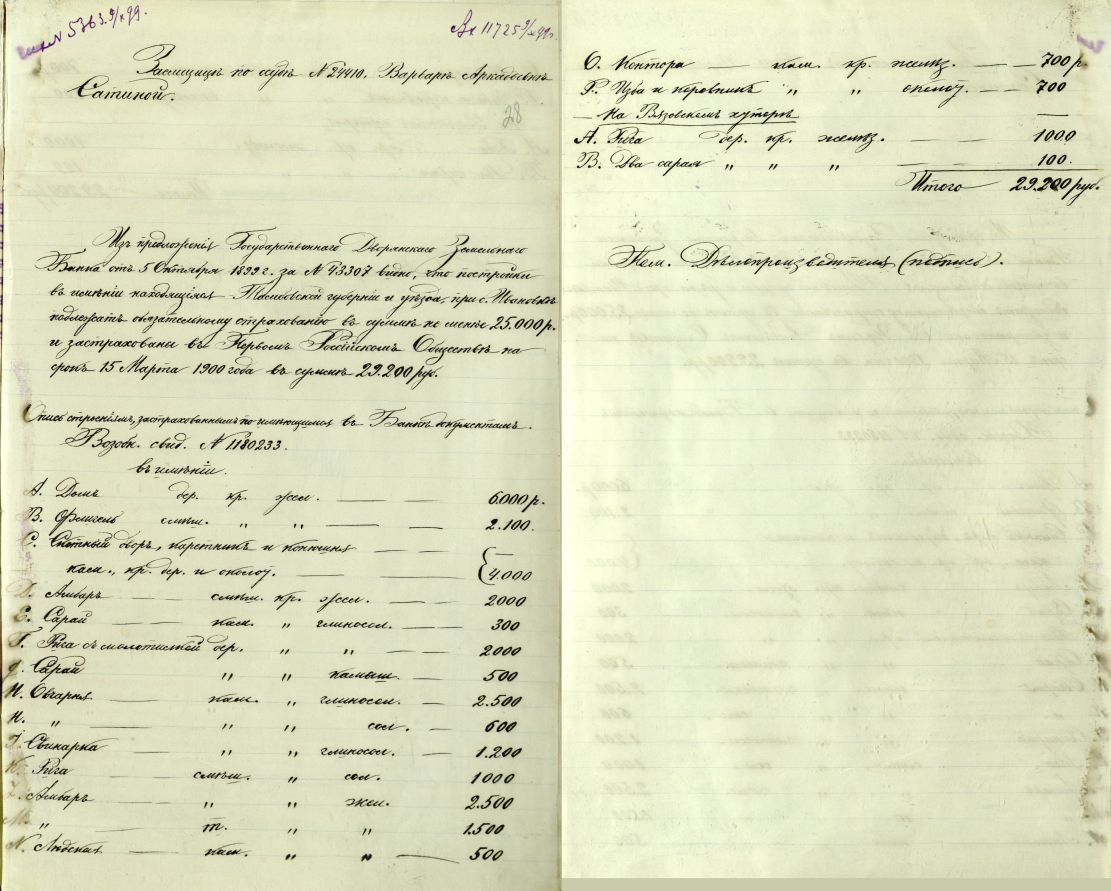 № 5363. 9/X 99.
Вх 11725 9/X 99 г.
Заемщице по ссуде № 24410. Варваре Аркадьевне
Сатиной.
28
Изъ предложенія Государственнаго Дворянскаго Земельнаго
Банка отъ 5 Октября 1899 г. за № 43307 видно, что постройки
въ имѣніи находящіяся Тамбовской губерніи и уѣзда, при с. Ивановкѣ
подлежатъ обязательному страхованію въ суммѣ не менѣе 25.000 р.
и застрахованы въ Первомъ Россійскомъ Обществѣ на
срокъ 15 Марта 1900 года въ суммѣ 29.200 руб.
Опись строеніямъ, застрахованнымъ по имѣющимся въ Банкѣ документамъ.
Возобн. свид. № 1180233.
въ имѣніи.
А. Домъ дер. кр. жел. — — — 6.000 р.
В. Флигель смѣш. „ „ — — — 2.100.
С. Скотный дворъ, каретникъ и конюшня —
кам., кр. дер. и околот. — — — { 4.000
D. Амбаръ смѣш. кр. жел. — — 2000
Е. Сарай — кам. „ глиносол. — — 300
F. Рига съ молотилкой дер. „ „ — — 2000
g. Сарай „ „ камыш. — 500
Н. Овчарня — кам. „ глиносол. — 2.500
Н. „ — „ „ сол. — 600
J. Свинарка — „ „ глиносол. — 1.200
К. Рига — смѣш. „ сол. — 1000
L. Амбаръ — „ „ жел. — 2.500
М. „ — т. „ „ — 1.500
N. Людская — кам. „ „ — 500
О. Контора — кам. кр. желѣз. — — 700 р
Р. Изба и коровникъ „ „ околот. — — 700
— На Вязовскомъ хуторѣ —
А. Рига дер. кр. желѣз. — — 1000
В. Два сарая „ „ „ — — 100.
Итого 29.200 руб.
Пом. Дѣлопроизводителя (подпись).